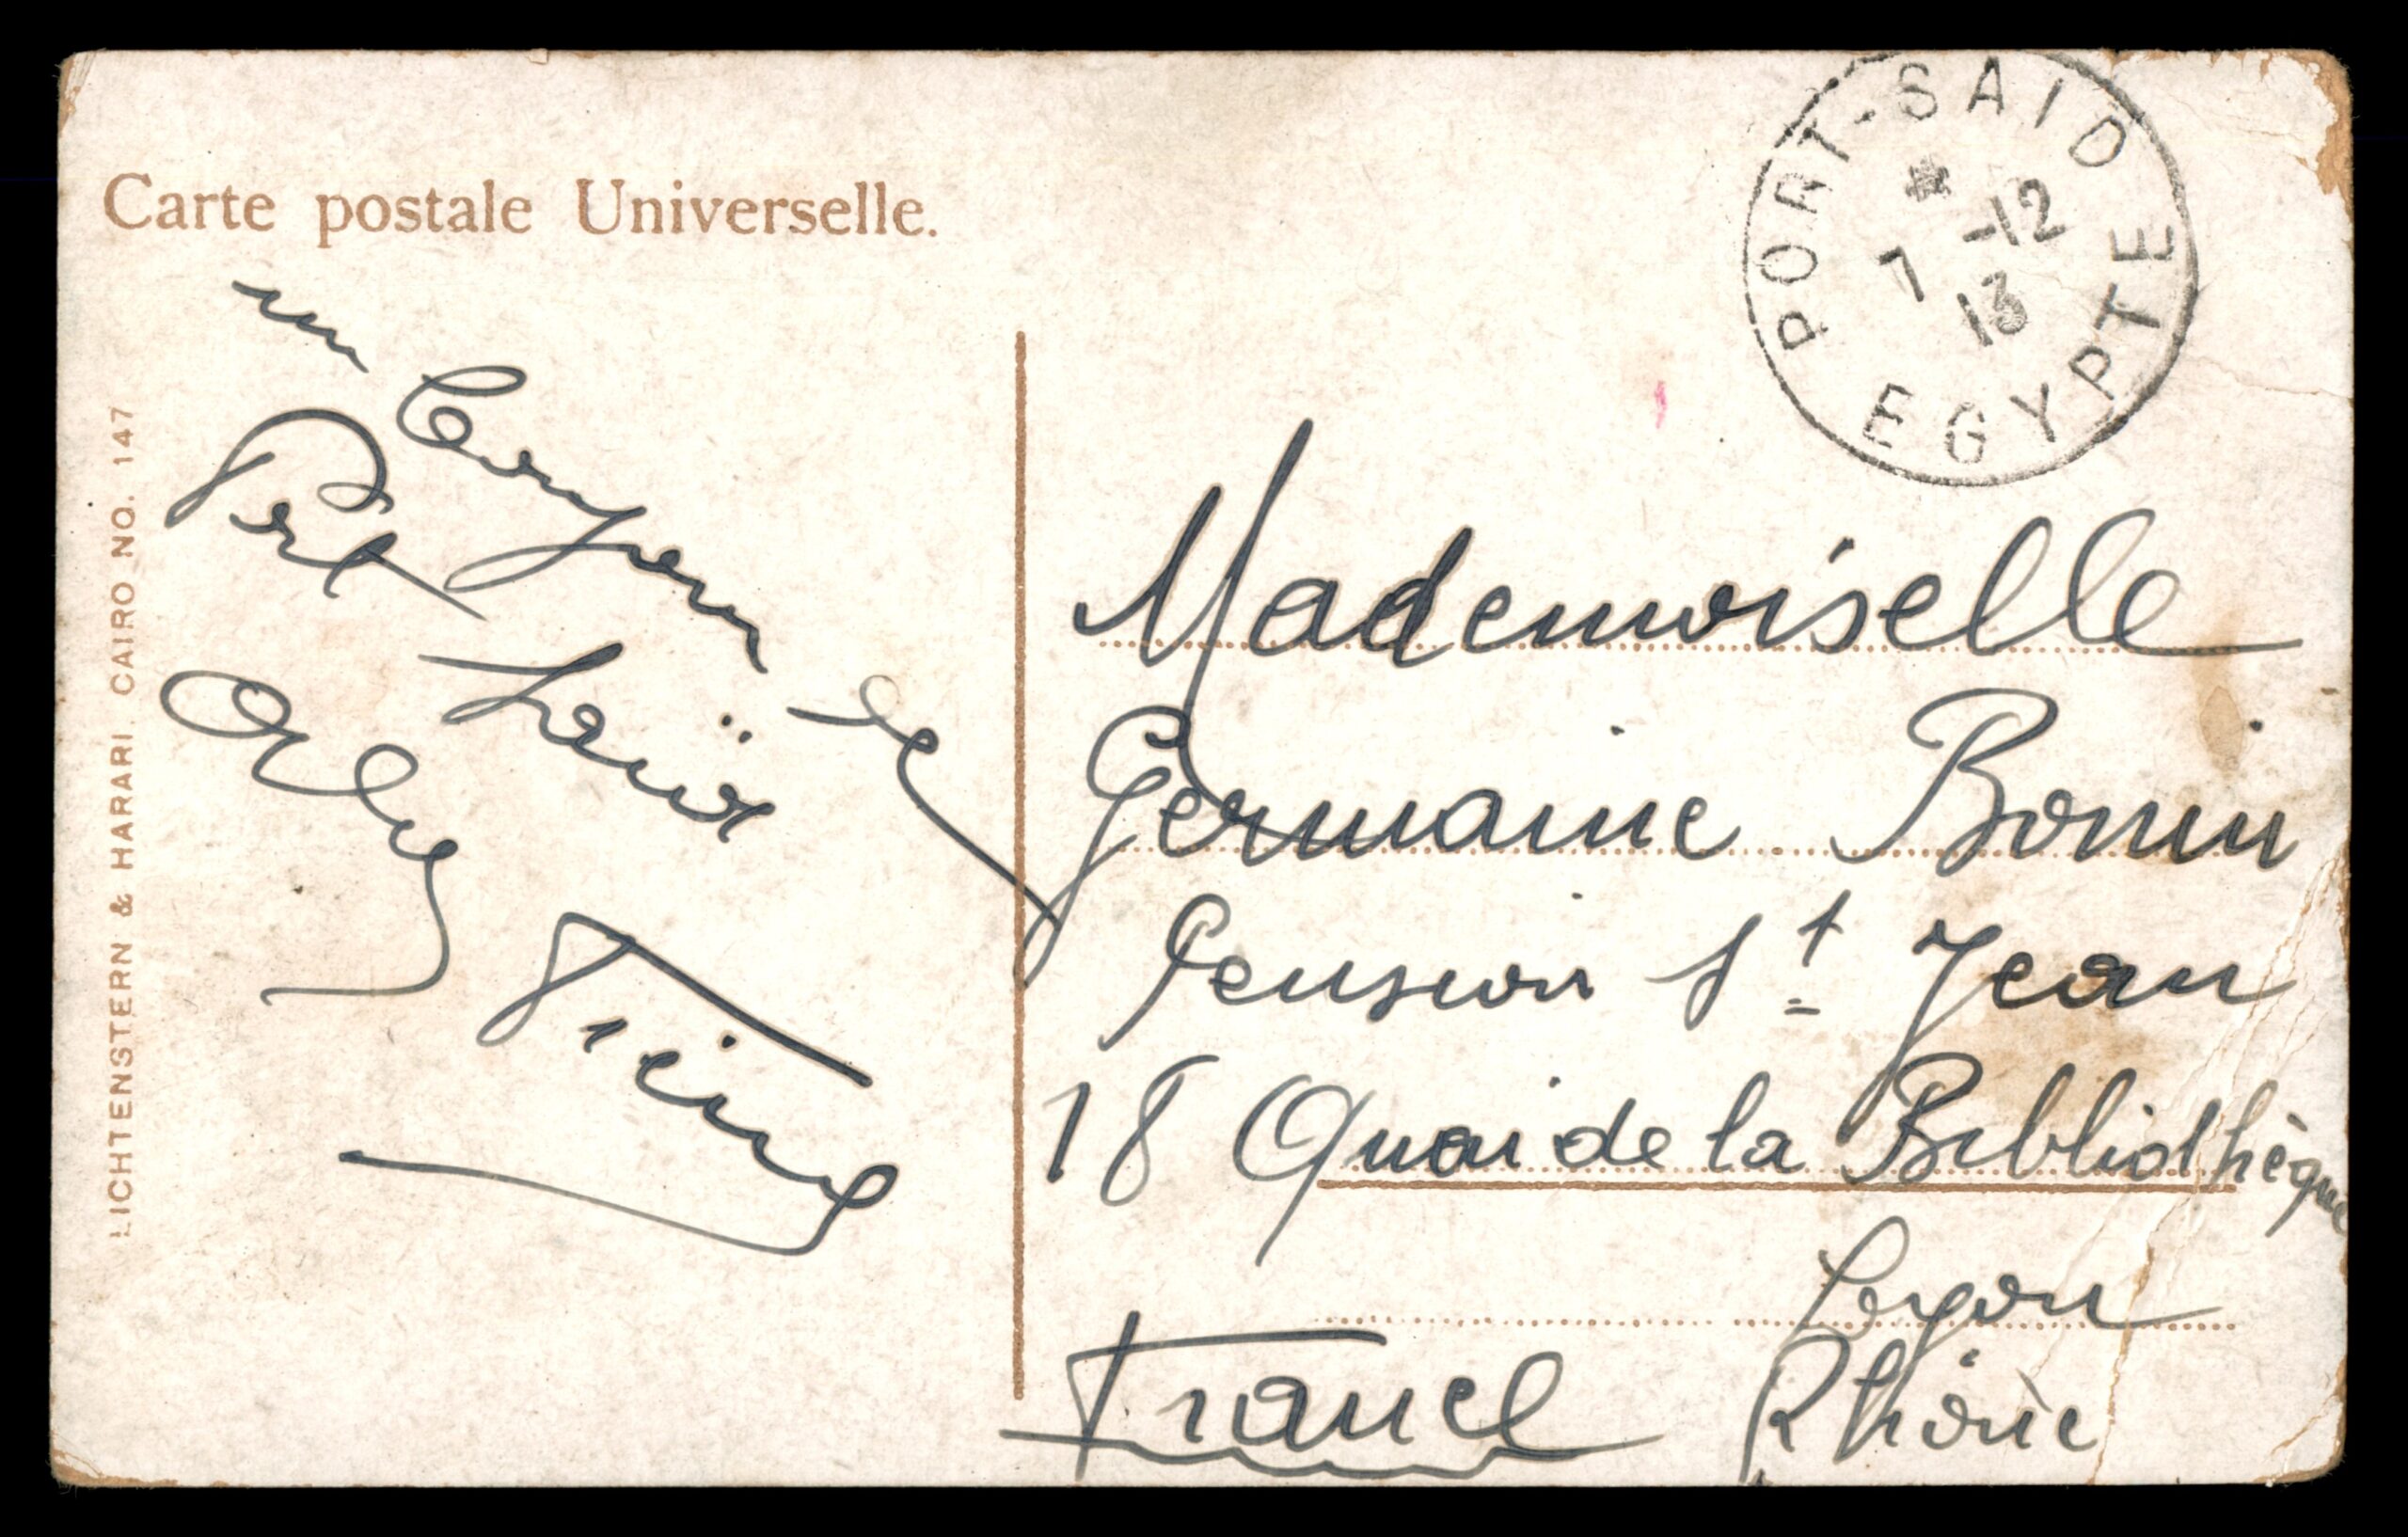 Carte postale Universelle.
PORT-SAID
7 -12
13
EGYPTE
un bonjour de
Port Saïd
LICHTENSTERN & HARARI. CAIRO NO. 147
Mademoiselle
Germaine Bonin
Pension St Jean
18 Quai de la Bibliothèque
Lyon
Rhône
France